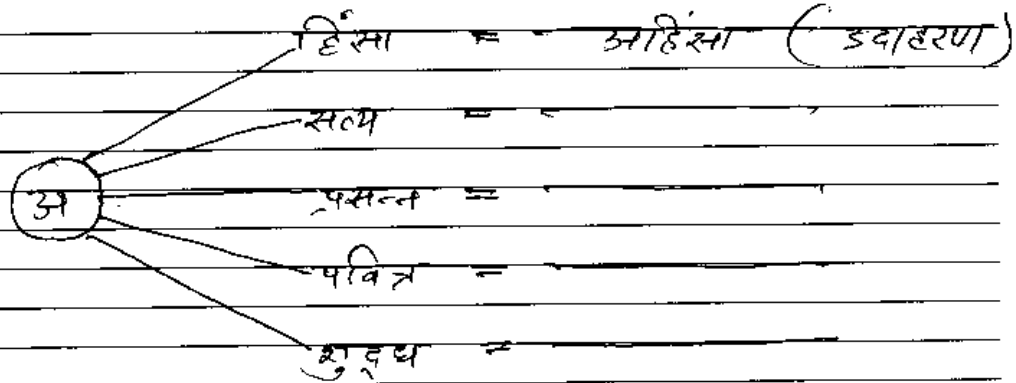 हिंसा = अहिंसा (उदाहरण)
सत्य =
अ प्रसन्न =
पवित्र =
शुद्ध =